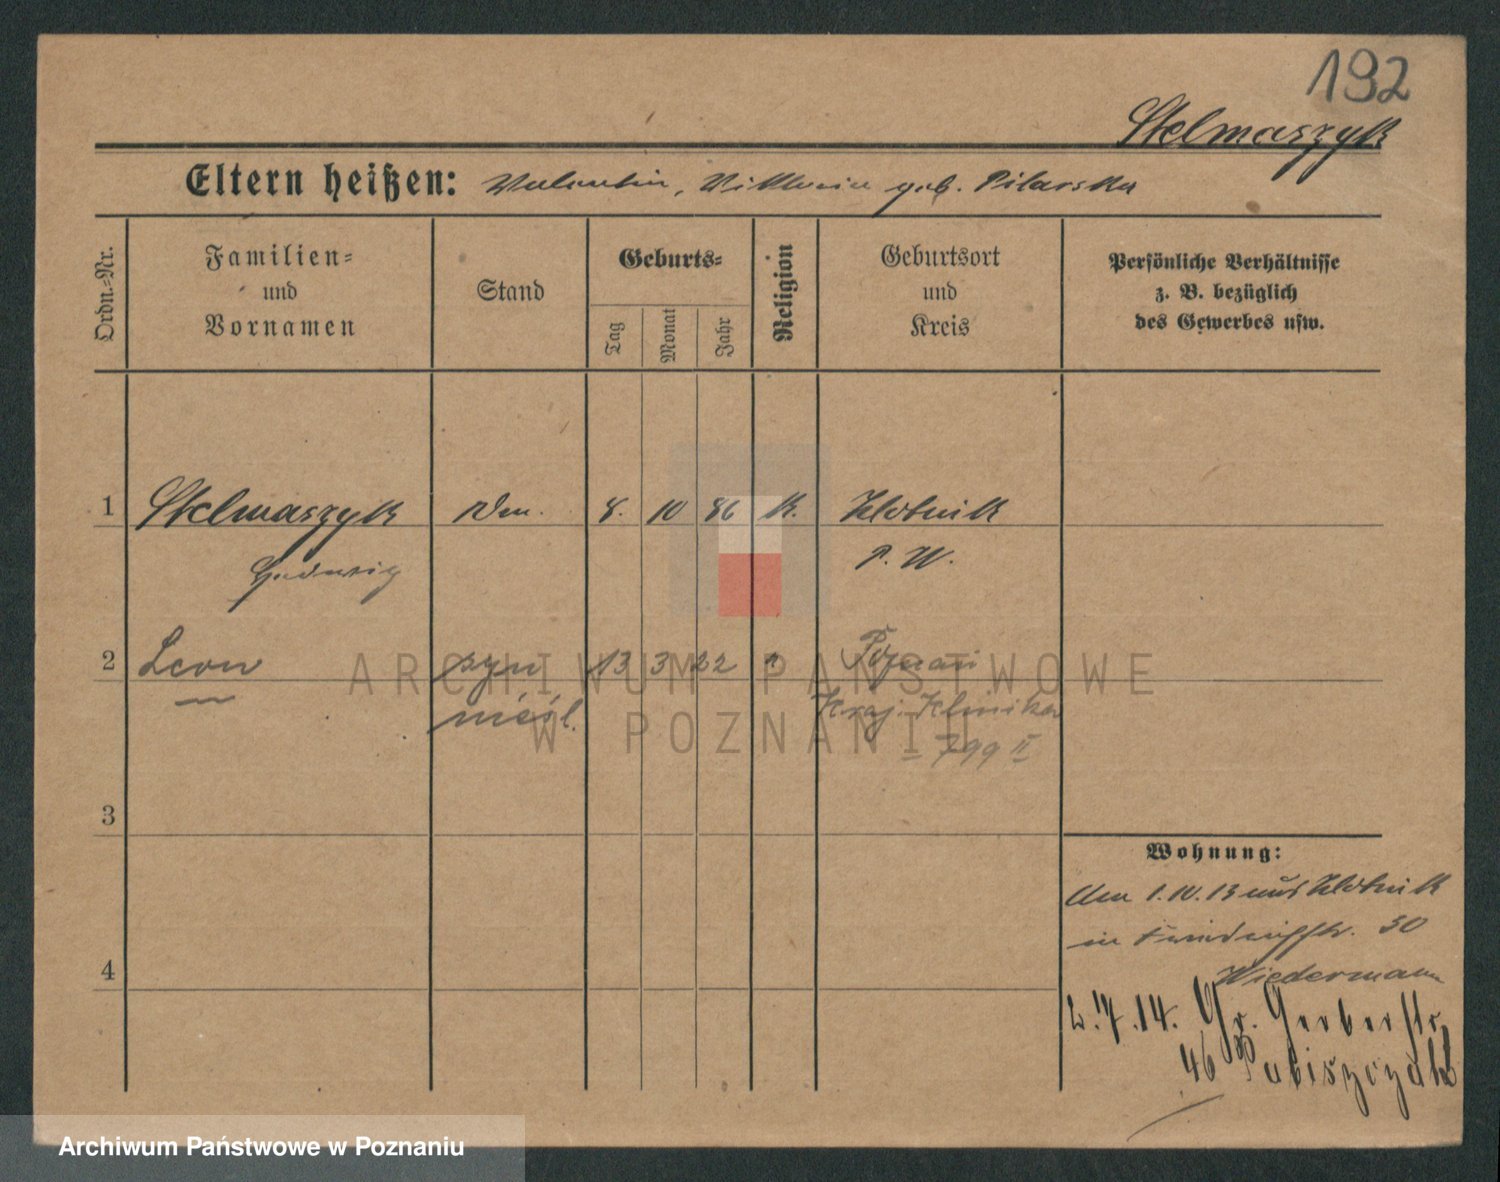 192
Stelmaszyk
Eltern heißen: Valentin, Viktoria geb. Pilarska
Ordn.-Nr.
Familien-
und
Vornamen
Stand
Geburts-
Tag
Monat
Jahr
Religion
Geburtsort
und
Kreis
Persönliche Verhältnisse
z. B. bezüglich
des Gewerbes usw.
1 Stelmaszyk 8. 10 86 k. Zlotnik
P. W.
2 Leon syn 13 3 22 Poznań
nieśl. Kraj. Klinika
799 II
3
4
Wohnung:
Am 1.10.13 aus Zlotnik
in 30
Wiedermann
2.7.14. Gr. Gerberstr.
46 Pabiszczak
ARCHIWUM PAŃSTWOWE
W POZNANIU
Archiwum Państwowe w Poznaniu